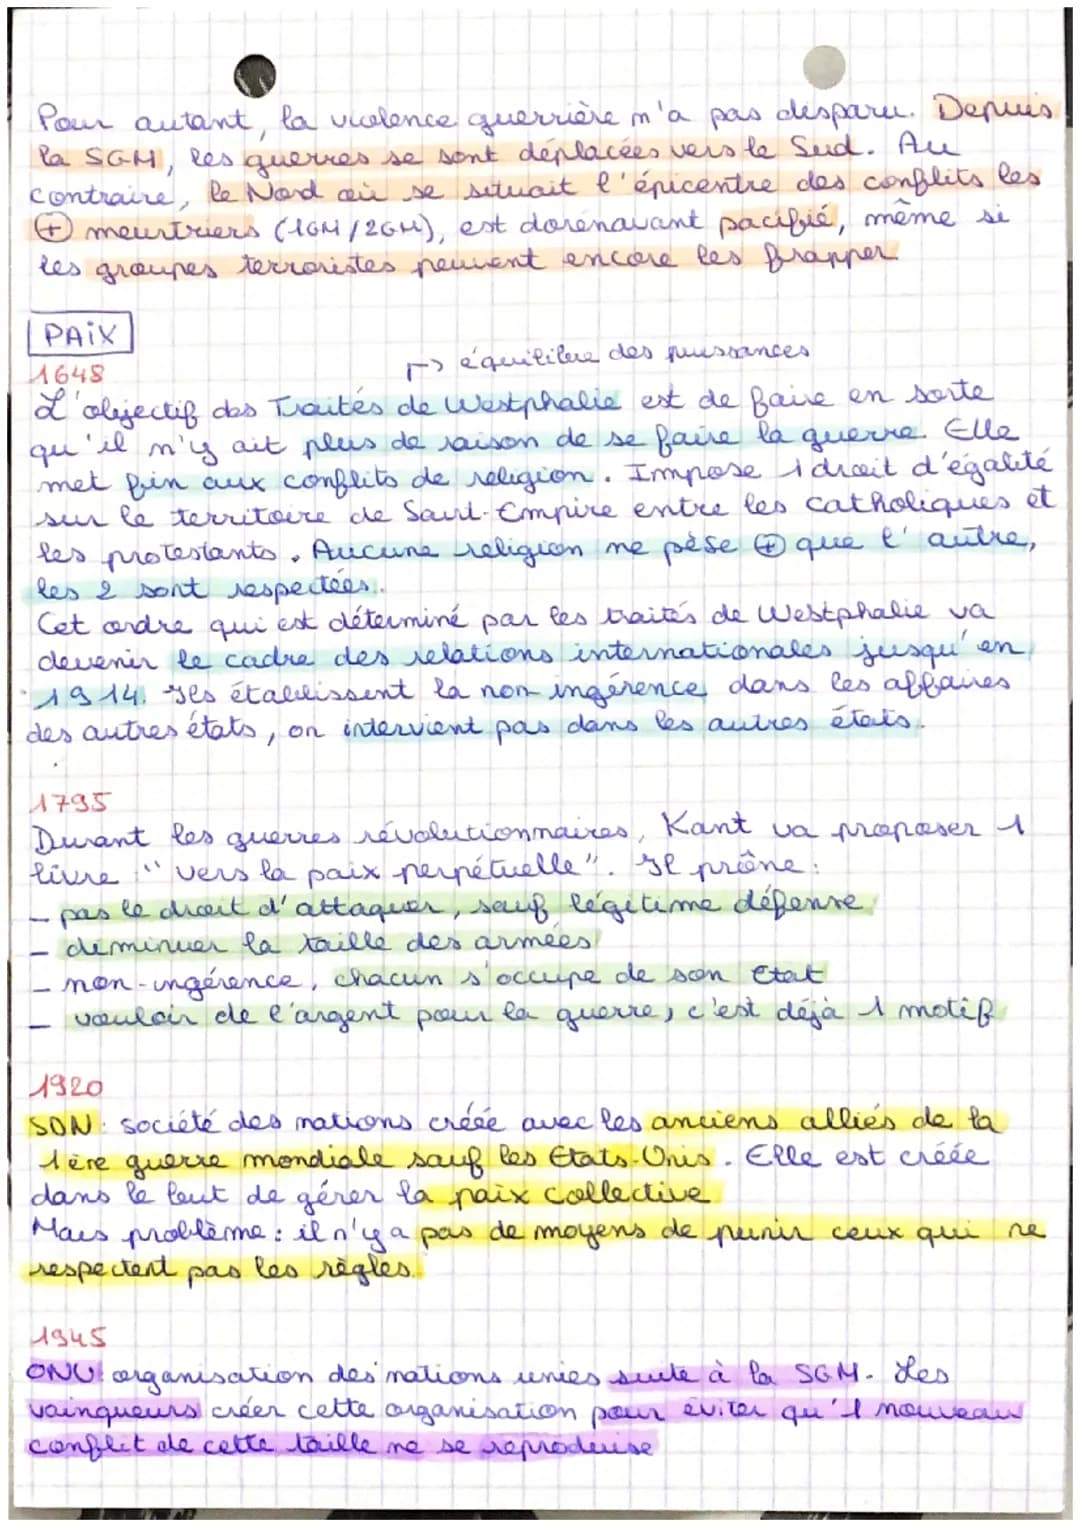 Pour autant, la violence guerrière n'a pas disparu. Depuis
la SGM, les guerres se sont déplacées vers le Sud. Au
contraire, le Nord où se situait l'épicentre des conflits les
+ meurtriers (1GM/2GM), est dorénavant pacifié, même si
les groupes terroristes peuvent encore les frapper.
PAiX
1648
→ équilibre des puissances
L'objectif des Traités de Westphalie est de faire en sorte
qu'il n'y ait plus de raison de se faire la guerre. Elle
met fin aux conflits de religion. Impose 1 droit d'égalité
sur le territoire de Saint-Empire entre les catholiques et
les protestants. Aucune religion ne pèse + que l'autre,
les 2 sont respectées.
Cet ordre qui est déterminé par les traités de Westphalie va
devenir le cadre des relations internationales jusqu'en
1914. Ils établissent la non-ingérence dans les affaires
des autres états, on intervient pas dans les autres états.
1795
Durant les guerres révolutionnaires, Kant va proposer 1
livre : "vers la paix perpétuelle". Il prône :
- pas le droit d'attaquer, sauf légitime défense
- diminuer la taille des armées
- non-ingérence, chacun s'occupe de son Etat
- vouloir de l'argent pour la guerre, c'est déjà 1 motif
1920
SDN : société des nations créée avec les anciens alliés de la
1ère guerre mondiale sauf les Etats-Unis. Elle est créée
dans le but de gérer la paix collective
Mais problème : il n'y a pas de moyens de punir ceux qui ne
respectent pas les règles.
1945
ONU : organisation des nations unies suite à la SGM. Les
vainqueurs créer cette organisation pour éviter qu'1 nouveau
conflit de cette taille ne se reproduise